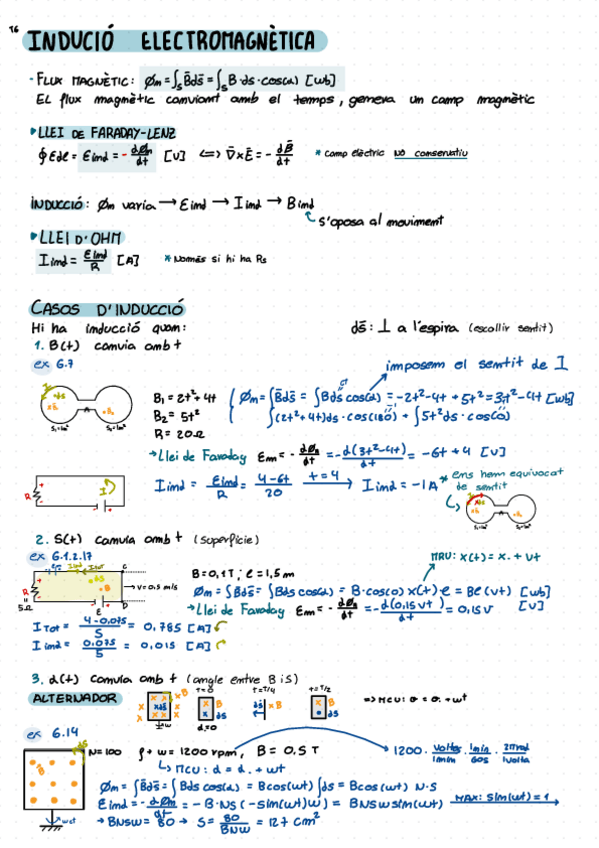 16
INDUCCIÓ ELECTROMAGNÈTICA
· FLUX MAGNÈTIC: Øm = ∫s B̄ds̄ = ∫s B·ds·cos(α) [Wb]
EL flux magnètic canviant amb el temps, genera un camp magnètic
LLEI DE FARADAY-LENZ
∮Edl = Eind = - dØm/dt [V] <=> ∇̄×Ē = - dB̄/dt * Camp elèctric NO conservatiu
INDUCCIÓ: Øm varia → Eind → Iind → Bind
S'oposa al moviment
LLEI D'OHM
Iind = Eind/R [A] * Només si hi ha Rs
CASOS D'INDUCCIÓ
Hi ha inducció quan: ds̄: ⊥ a l'espira (escollir sentit)
1. B(t) canvia amb t
ex 6.7
imposem el sentit de I
B₁ = 2t²+4t
B₂ = 5t²
R = 20Ω
Øm = ∫B̄ds̄ = ∫Bds cos(α) = -2t²-4t + 5t² = 3t²-4t [Wb]
∫(2t²+4t)ds·cos(180) + ∫5t²ds·cos(0)
S₁=1m² S₂=1m²
→Llei de Faraday Em = - dØm/dt = -d(3t²-4t)/dt = -6t+4 [V]
Iind = Eind/R = 4-6t/20 t=4 → Iind = -1A * ens hem equivocat de sentit
R I
2. S(t) canvia amb t (superfície)
ex 6.1.2.17
MRU: x(t) = x. + vt
B = 0,1T; l = 1,5m
→ v=0,5 m/s
Øm = ∫B̄ds̄ = ∫Bds cos(α) = B·cos(0) x(t)·l = Bl(vt) [Wb]
→Llei de Faraday Em = - dØm/dt = - d(0,15vt)/dt = 0,15v [V]
R
5Ω
C
D
ITot = 4-0.075/5 = 0,785 [A]
Iind = 0.075/5 = 0,015 [A]
3. α(t) canvia amb t (angle entre B i S)
ALTERNADOR
t=0 t=T/4 t=T/2
=> MCU: α = α. + wt
α.=0
ex 6.14
N=100 f → w = 1200 rpm, B = 0.5 T
1200 · voltes/1min · 1min/60s · 2πrad/1volta
↳ MCU: α = α. + wt
Øm = ∫B̄ds̄ = ∫Bds cos(α) = Bcos(wt) ∫ds = Bcos(wt) N·S
Eind = - dØm/dt = - B·NS(-sin(wt)w) = BNSwsin(wt) MAX: sin(wt)=1 →
→ BNSw = 80 → S = 80/BNW = 127 cm²